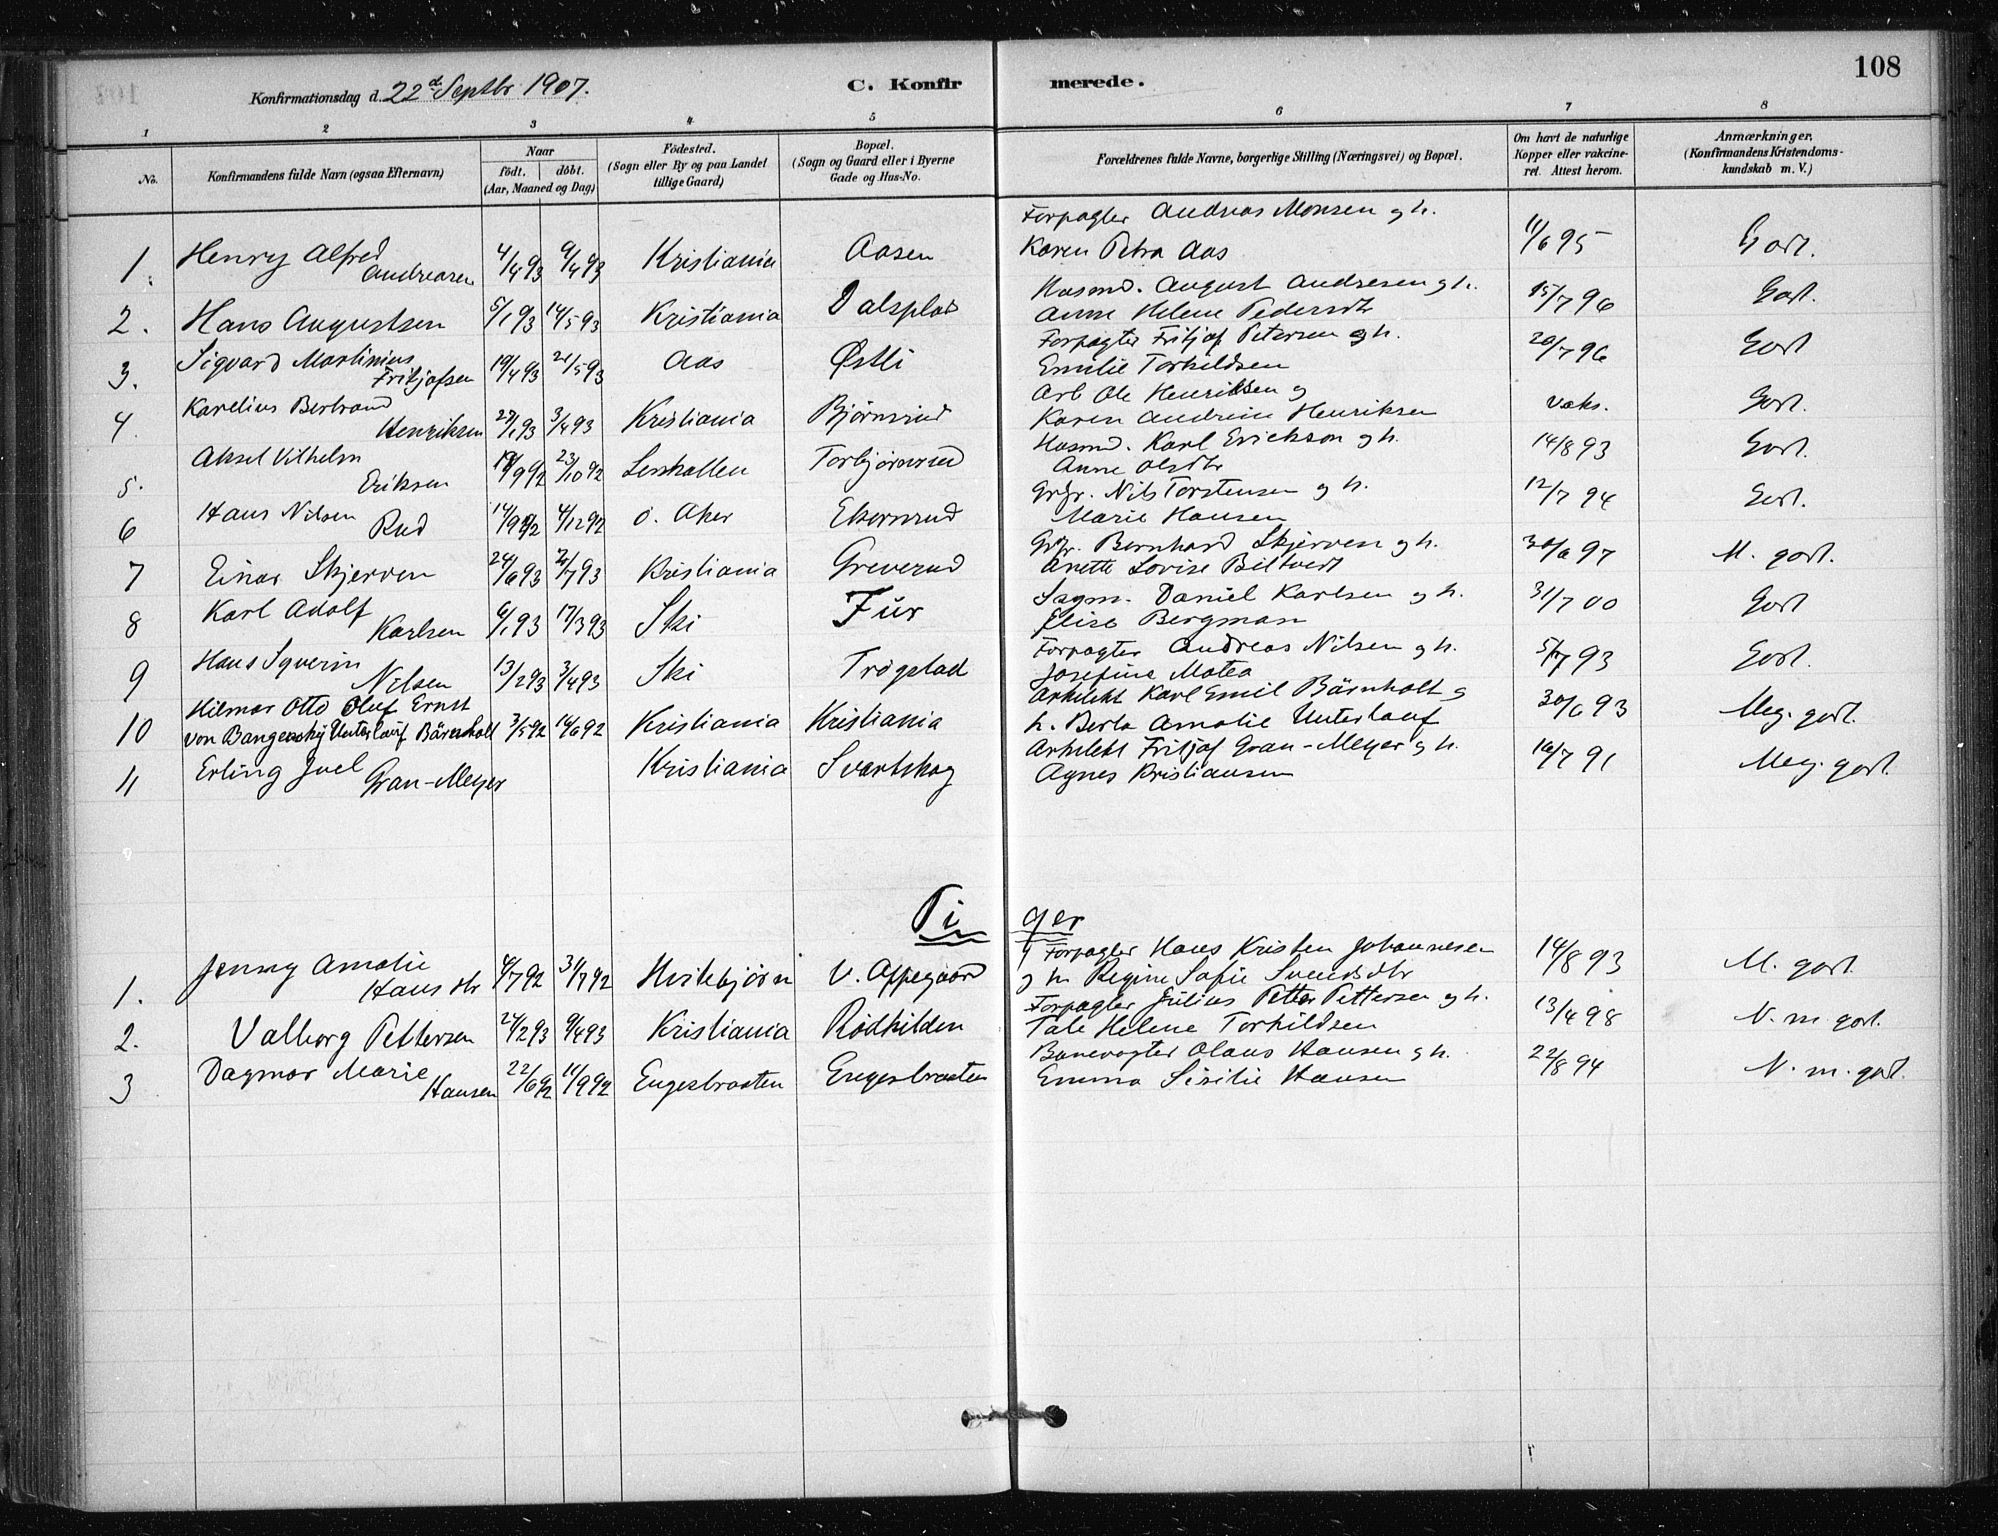 108
Konfirmationsdag d. 22d Septbr 1907.
C. Konfirmerede.
1 2 3 4 5 6 7 8
No.
Konfirmandens fulde Navn (ogsaa Efternavn)
Naar
födt. döbt.
(Aar, Maaned og Dag)
Födested.
(Sogn eller By og paa Landet
tillige Gaard)
Bopæl.
(Sogn og Gaard eller i Byerne
Gade og Hus-No.
Forældrenes fulde Navne, borgerlige Stilling (Næringsvei) og Bopæl.
Om havt de naturlige
Kopper eller vakcine-
ret. Attest herom.
Anmærkninger.
(Konfirmandens Kristendoms-
kundskab m. V.)
Forpagter Andreas Monsen og h.
1. Henry Alfred Andreasen 4/4 93 9/4 93 Kristiania Aasen Karen Petra Aas 11/6 95 Godt.
Husmd. August Andresen og h.
2. Hans Augustsen 5/1 93 14/5 93 Kristiania Dalsplad Anne Helene Pedersdtr 15/7 96 Godt.
Forpagter Fritjof Petersen og h.
3. Sigvard Martinius Fritjofsen 19/4 93 21/5 93 Aas Østli Emilie Torkildsen 20/7 96 Godt
Arb Ole Henriksen og
4. Karelius Bertrand Henriksen 27/1 93 3/4 93 Kristiania Bjørnsrud Karen Andrine Henriksen Vaks. Godt.
Husmd. Karl Erickson og h.
5. Aksel Vilhelm Eriksen 19/9 92 23/10 92 Torbjørnsrud Anne Olsdtr 14/8 93 Godt.
Grbr. Nils Torstensen og h.
6 Hans Nilsen Rud 14/9 92 4/12 92 Ø. Aker Ekornrud Marie Hansen 12/7 94 Godt.
Grbr. Bernhard Skjerven og h.
7 Einar Skjerven 24/6 93 2/7 93 Kristiania Greverud Anette Lovise Biltvedt 30/6 97 M. godt.
Sagm. Daniel Karlsen og h.
8 Karl Adolf Karlsen 6/1 93 17/3 93 Ski Für Elise Bergman 31/7 00 Godt
Forpagter Andreas Nilsen og h.
9 Hans Syverin Nilsen 13/2 93 3/4 93 Ski Trøgstad Josefine Matea 5/7 93 Godt.
Hilmar Otto Oluf Ernst Arkitekt Karl Emil Bärnholt og
10 von Unterlauf Bärnholt 3/5 92 16/6 92 Kristiania Kristiania h. Berta Amalie Unterlauf 30/6 93 Meg. godt.
Arkitekt Fritjof Gran-Meyer og h.
11 Erling Juel Gran-Meyer Kristiania Svartskog Agnes Kristiansen 16/7 91 Meg. godt.
Piger
Forpagter Hans Kristen Johannesen
1. Jenny Amalie Hansdtr 4/7 92 31/7 92 Hvitebjørn V. Oppegaard og h Regine Sofie Svendsdtr 14/8 93 M. godt.
Forpagter Julius Petter Pettersen og h.
2. Valborg Pettersen 24/2 93 9/4 93 Kristiania Rødkilden Tale Helene Torkildsen 13/4 98 N. m godt.
Banevogter Olaus Hansen og h.
3 Dagmar Marie Hansen 22/6 92 11/9 92 Engesbraaten Engesbraaten Emma Sisilie Hansen 22/8 94 N. m. godt.